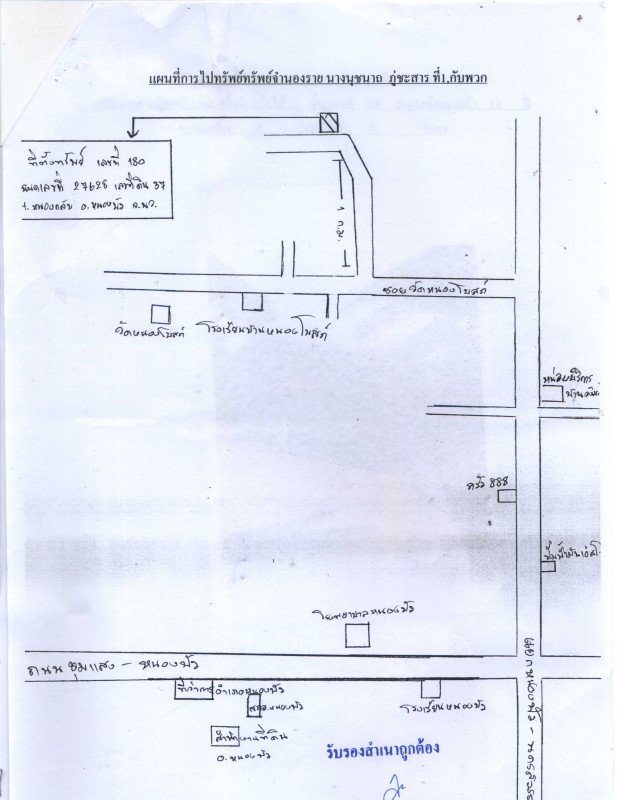 แผนที่การไปทรัพย์ทรัพย์จำนองราย นางนุชนาด ภู่ชะสาร ที่1,กับพวก
ที่ตั้งทรัพย์ เลขที่ 180
โฉนดเลขที่ 27628 เลขที่ดิน 37
ต.หนองกลับ อ.หนองบัว จ.นว.
1 กม.
ซอยวัดหนองโบสถ์
วัดหนองโบสถ์
โรงเรียนบ้านหนองโบสถ์
หน่วยบริการ
ครัว 888
โรงพยาบาลหนองบัว
ถนนชุมแสง - หนองบัว
ที่ว่าการอำเภอหนองบัว
หนองบัว
โรงเรียนหนองบัว
สำนักงานที่ดิน
อ.หนองบัว
รับรองสำเนาถูกต้อง